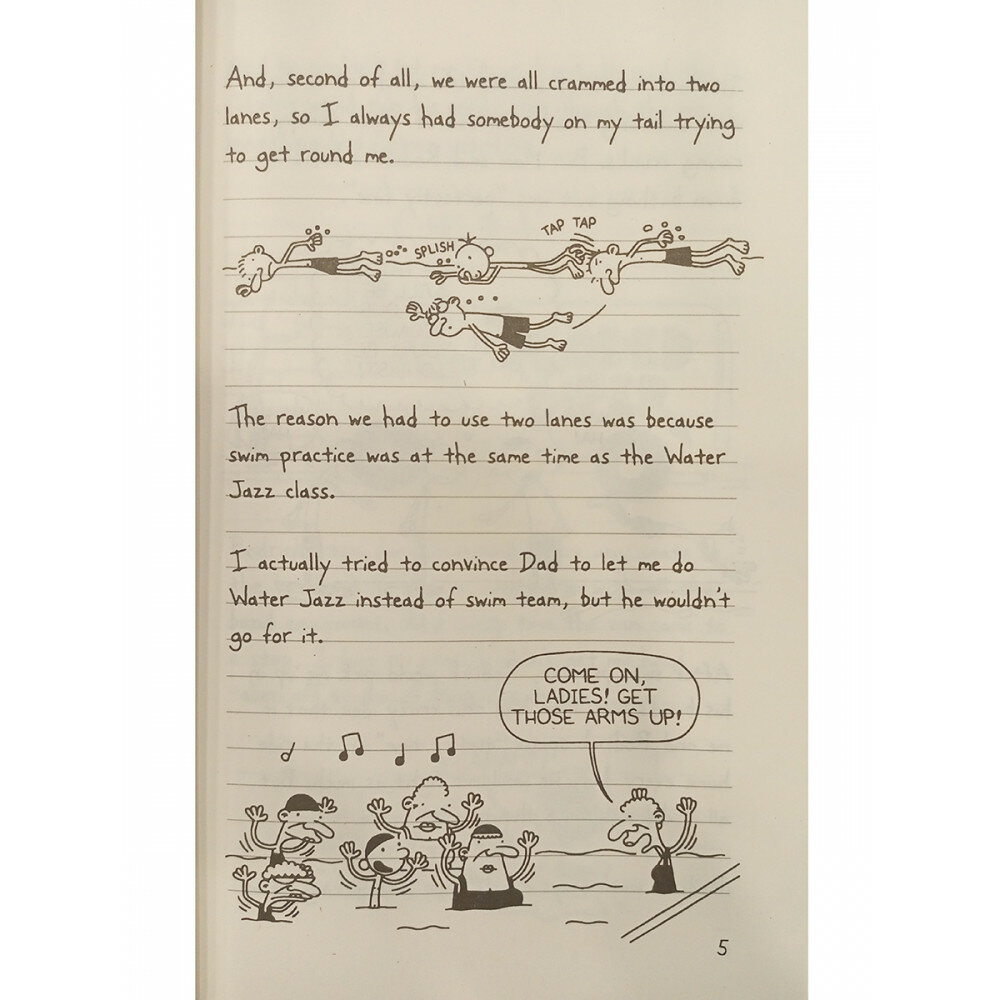 And, second of all, we were all crammed into two
lanes, so I always had somebody on my tail trying
to get round me.
SPLISH
TAP TAP
The reason we had to use two lanes was because
swim practice was at the same time as the Water
Jazz class.
I actually tried to convince Dad to let me do
Water Jazz instead of swim team, but he wouldn't
go for it.
COME ON,
LADIES! GET
THOSE ARMS UP!
5